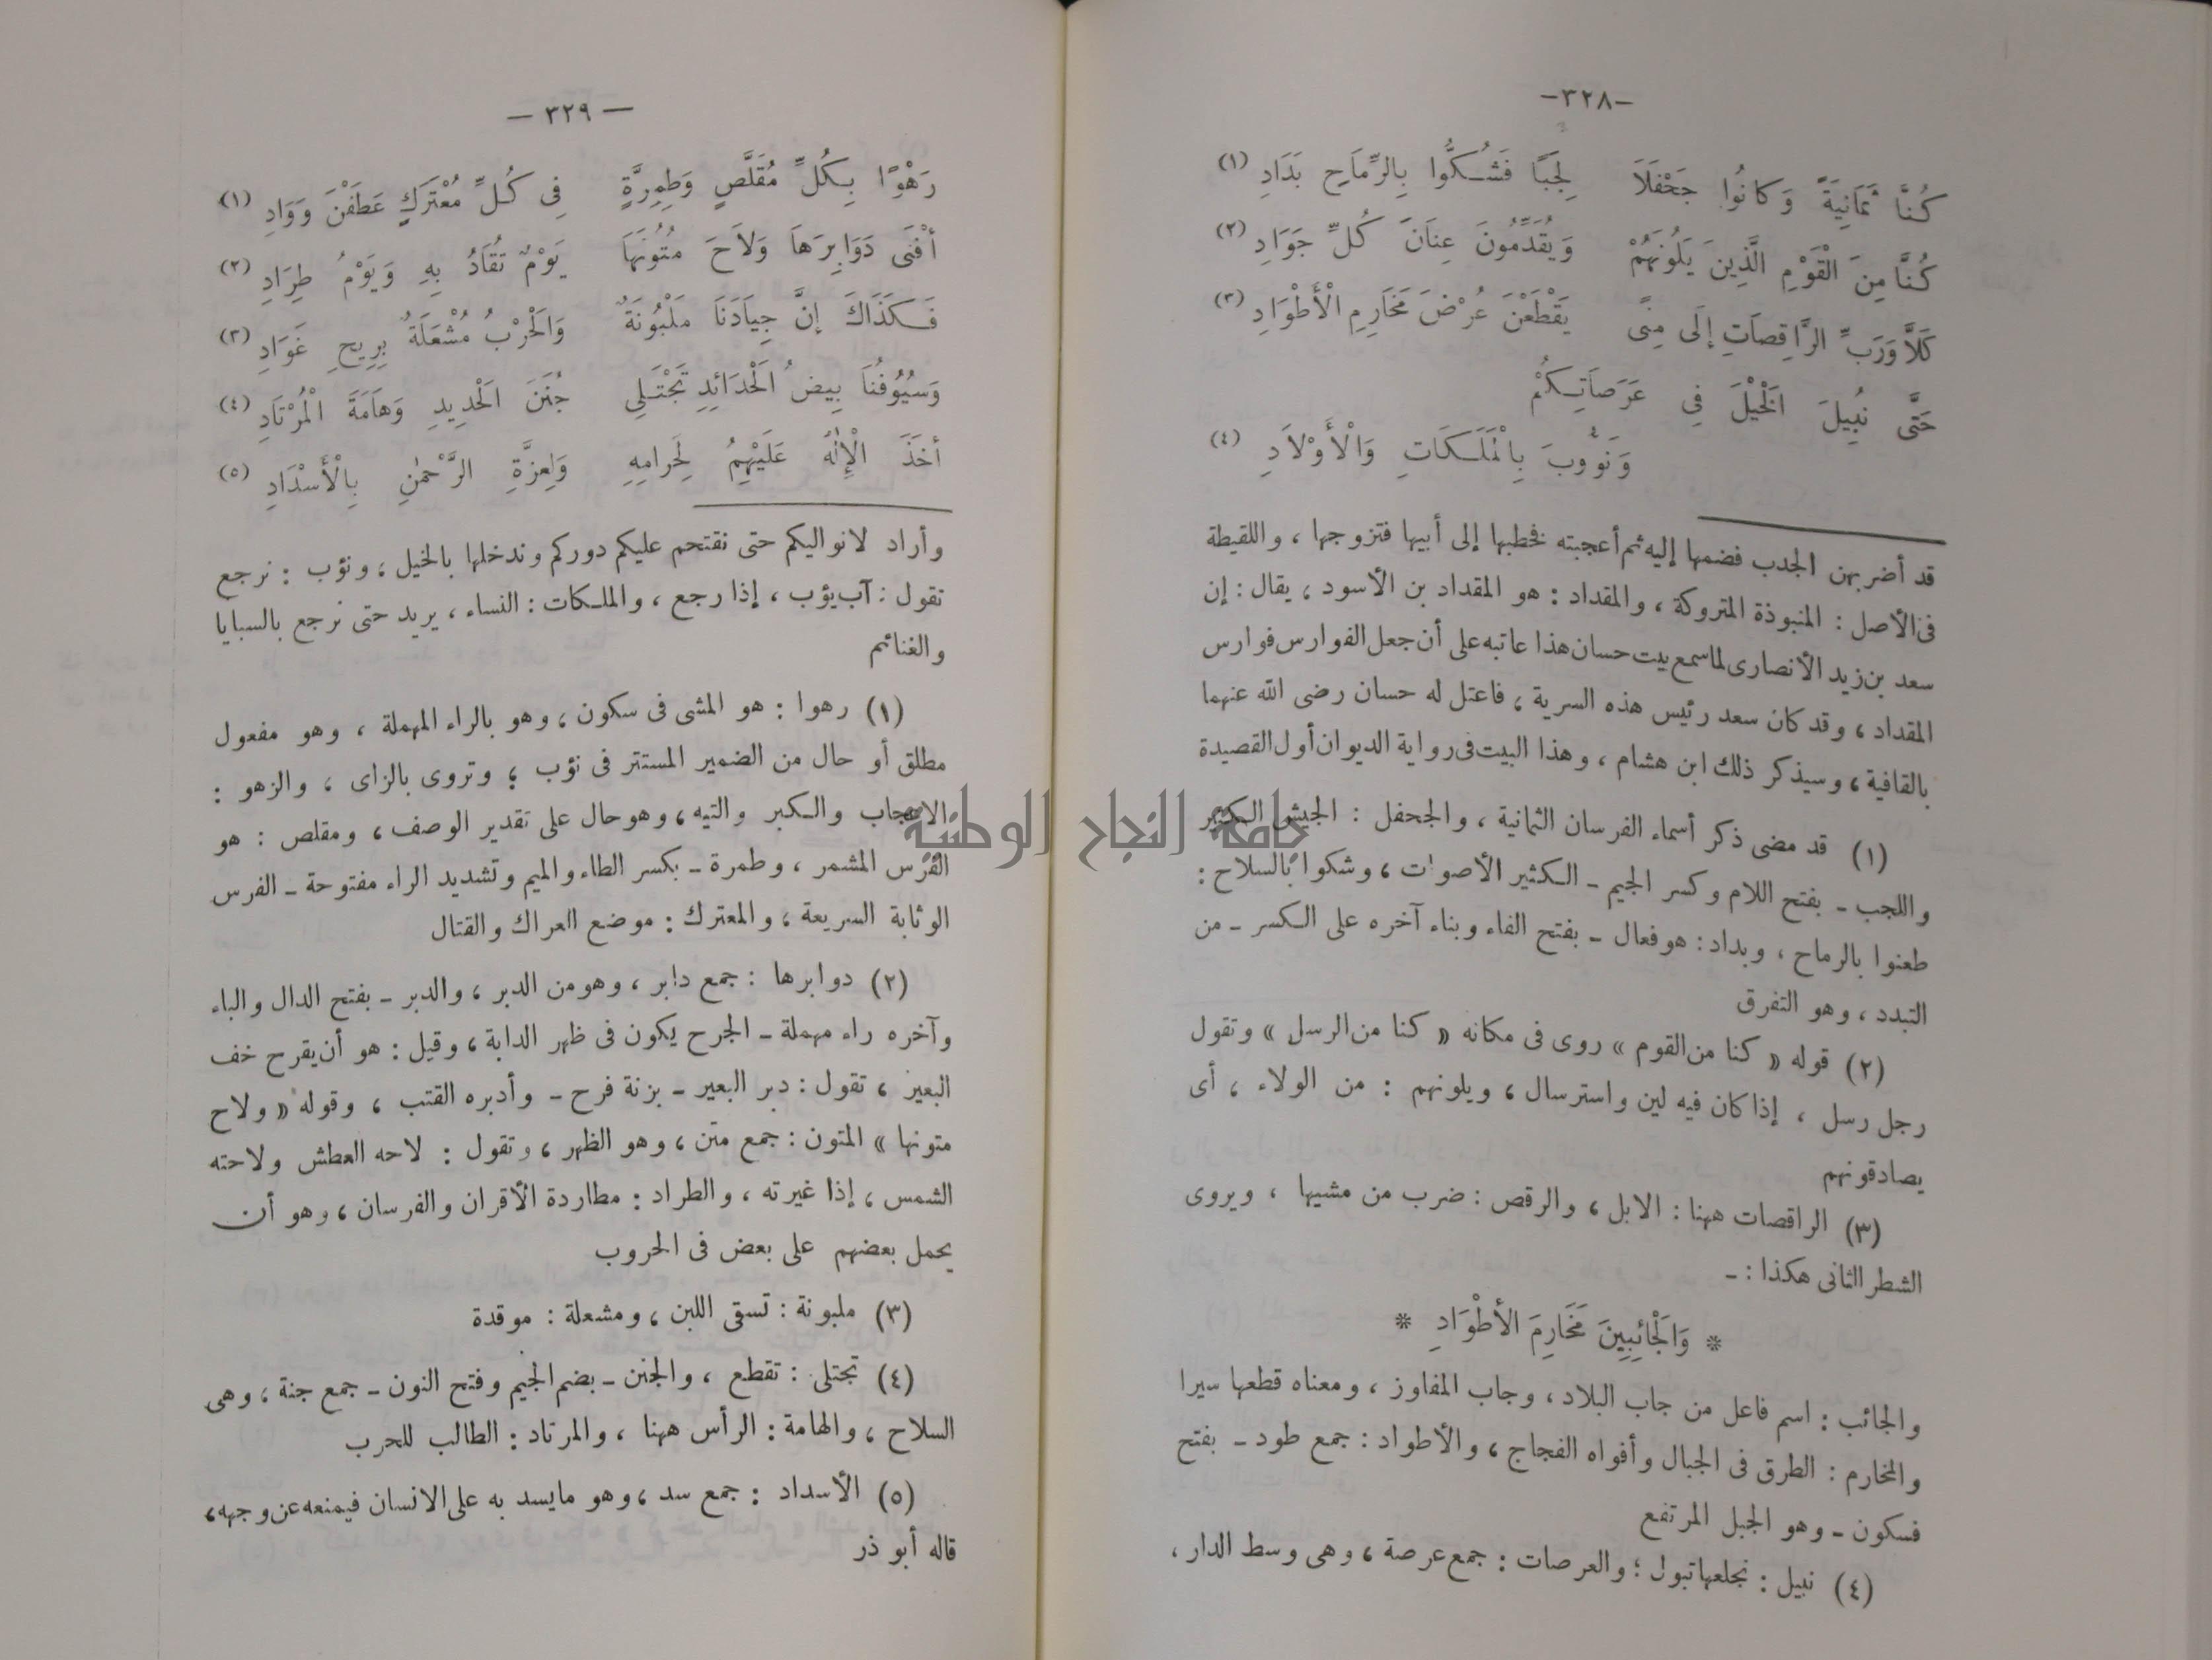 –٣٢٨–
كُنَّا ثَمَانِيَةً وَكانُوا جَحْفَلَا لَجِبًا فَشُكُّوا بِالرِّمَاحِ بَدَادِ (١)
كُنَّا مِنَ الْقَوْمِ الَّذِينَ يَلُونَهُمْ وَيُقَدِّمُونَ عِنَانَ كُلِّ جَوَادِ (٢)
كَلَّا وَرَبِّ الرَّاقِصَاتِ إِلَى مِنًى يَقْطَعْنَ عُرْضَ مَخَارِمِ الْأَطْوَادِ (٣)
حَتَّى نُبِيلَ الْخَيْلَ فِى عَرَصَاتِكُمْ
وَنَؤُوبَ بِالْمَلَكَاتِ وَالْأَوْلَادِ (٤)
قد أضر بهن الجدب فضمها إليه ثم أعجبته فخطبها إلى أبيها فتزوجها ، واللقيطة
فى الأصل : المنبوذة المتروكة ، والمقداد : هو المقداد بن الأسود ، يقال : إن
سعد بن زيد الأنصارى لما سمع بيت حسان هذا عاتبه على أن جعل الفوارس فوارس
المقداد ، وقد كان سعد رئيس هذه السرية ، فاعتل له حسان رضى الله عنهما
بالقافية ، وسيذكر ذلك ابن هشام ، وهذا البيت فى رواية الديوان أول القصيدة
(١) قد مضى ذكر أسماء الفرسان الثمانية ، والجحفل : الجيش الكثير
واللجب – بفتح اللام وكسر الجيم – الكثير الأصوات ، وشكوا بالسلاح :
طعنوا بالرماح ، وبداد : هو فعال – بفتح الفاء وبناء آخره على الكسر – من
التبدد ، وهو التفرق
(٢) قوله « كنا من القوم » روى فى مكانه « كنا من الرسل » وتقول
رجل رسل ، إذا كان فيه لين واسترسال ، ويلونهم : من الولاء ، أى
يصادقونهم
(٣) الراقصات ههنا : الابل ، والرقص : ضرب من مشيها ، ويروى
الشطر الثانى هكذا : –
* وَالْجَائِبِينَ مَخَارِمَ الأَطْوَادِ *
والجائب : اسم فاعل من جاب البلاد ، وجاب المفاوز ، ومعناه قطعها سيرا
والمخارم : الطرق فى الجبال وأفواه الفجاج ، والأطواد : جمع طود – بفتح
فسكون – وهو الجبل المرتفع
(٤) نبيل : نجلعها تبول ؛ والعرصات : جمع عرصة ، وهى وسط الدار ،
— ٣٢٩ —
رَهْوًا بِكُلِّ مُقَلَّصٍ وَطِمِرَّةٍ فِى كُلِّ مُعْتَرَكٍ عَطَفْنَ وَوَادِ (١)
أَفْنَى دَوَابِرَهَا وَلَاحَ مُتُونَهَا يَوْمٌ تُقَادُ بِهِ وَيَوْمُ طِرَادِ (٢)
فَكَذَاكَ إِنَّ جِيَادَنَا مَلْبُونَةٌ وَالْحَرْبُ مُشْعَلَةٌ بِرِيحِ غَوَادِ (٣)
وَسُيُوفُنَا بِيضُ الْحَدَائِدِ تَجْتَلِى جُنَنَ الْحَدِيدِ وَهَامَةَ الْمُرْتَادِ (٤)
أَخَذَ الْإِلٰهُ عَلَيْهِمُ لِحَرامِهِ وَلِعِزَّةِ الرَّحْمٰنِ بِالْأَسْدَادِ (٥)
وأراد لانواليكم حتى نقتحم عليكم دوركم وندخلها بالخيل ، ونؤب : نرجع
تقول : آب يؤب ، إذا رجع ، والملكات : النساء ، يريد حتى نرجع بالسبايا
والغنائم
(١) رهوا : هو المشى فى سكون ، وهو بالراء المهملة ، وهو مفعول
مطلق أو حال من الضمير المستتر فى نؤب ؛ وتروى بالزاى ، والزهو :
الاعجاب والكبر والتيه ، وهو حال على تقدير الوصف ، ومقلص : هو
الفرس المشمر ، وطمرة – بكسر الطاء والميم وتشديد الراء مفتوحة – الفرس
الوثابة السريعة ، والمعترك : موضع العراك والقتال
(٢) دوابرها : جمع دابر ، وهو من الدبر ، والدبر – بفتح الدال والباء
وآخره راء مهملة – الجرح يكون فى ظهر الدابة ، وقيل : هو أن يقرح خف
البعير ، تقول : دبر البعير – بزنة فرح – وأدبره القتب ، وقوله « ولاح
متونها » المتون : جمع متن ، وهو الظهر ، وتقول : لاحه العطش ولاحته
الشمس ، إذا غيرته ، والطراد : مطاردة الأقران والفرسان ، وهو أن
يحمل بعضهم على بعض فى الحروب
(٣) ملبونة : تسقى اللبن ، ومشعلة : موقدة
(٤) تجتلى : تقطع ، والجنن – بضم الجيم وفتح النون – جمع جنة ، وهى
السلاح ، والهامة : الرأس ههنا ، والمرتاد : الطالب للحرب
(٥) الأسداد : جمع سد ، وهو مايسد به على الانسان فيمنعه عن وجهه ،
قاله أبو ذر
جامعة النجاح الوطنية